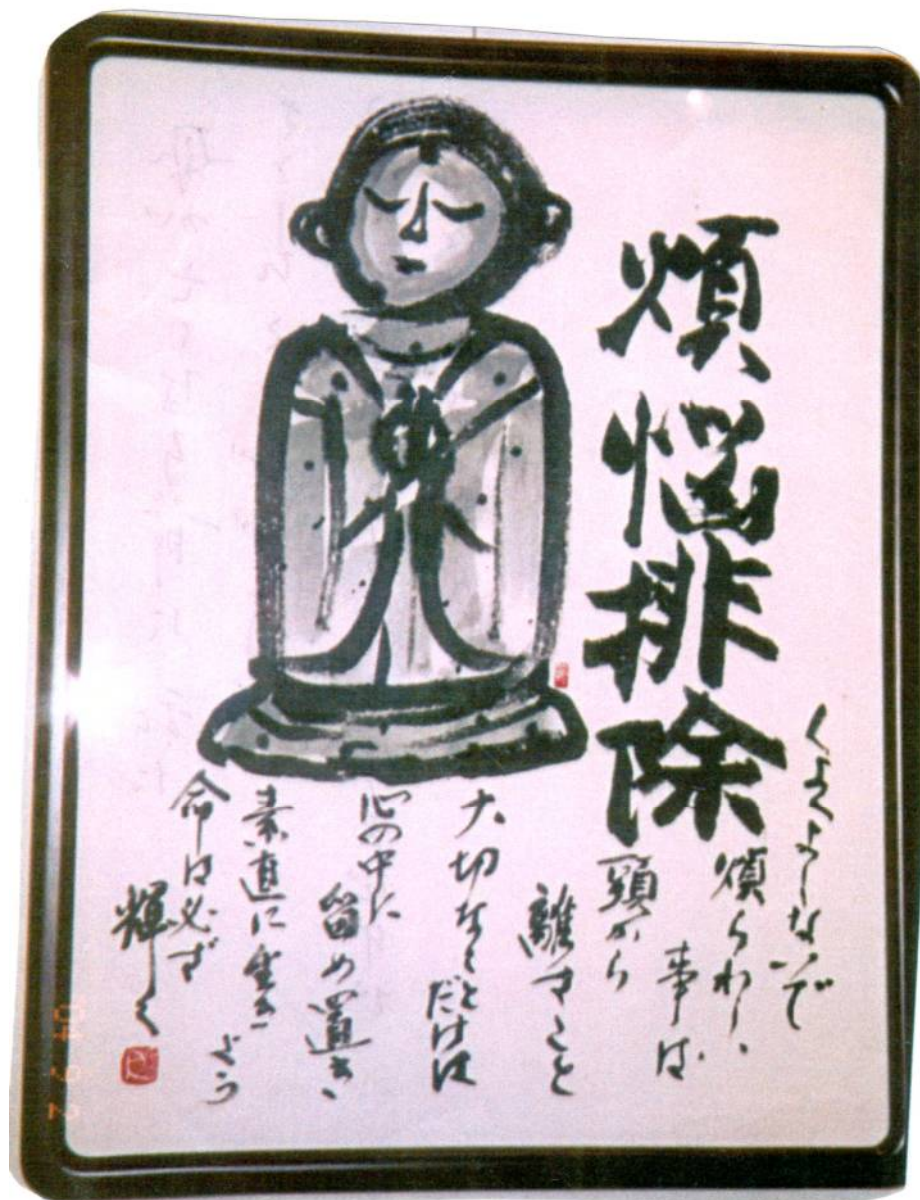 煩悩排除
くよくよしないで
煩らわしい
事は
頭から
離すこと
大切なことだけは
心の中に
留め置き
素直に生きよう
命は必ず
輝く